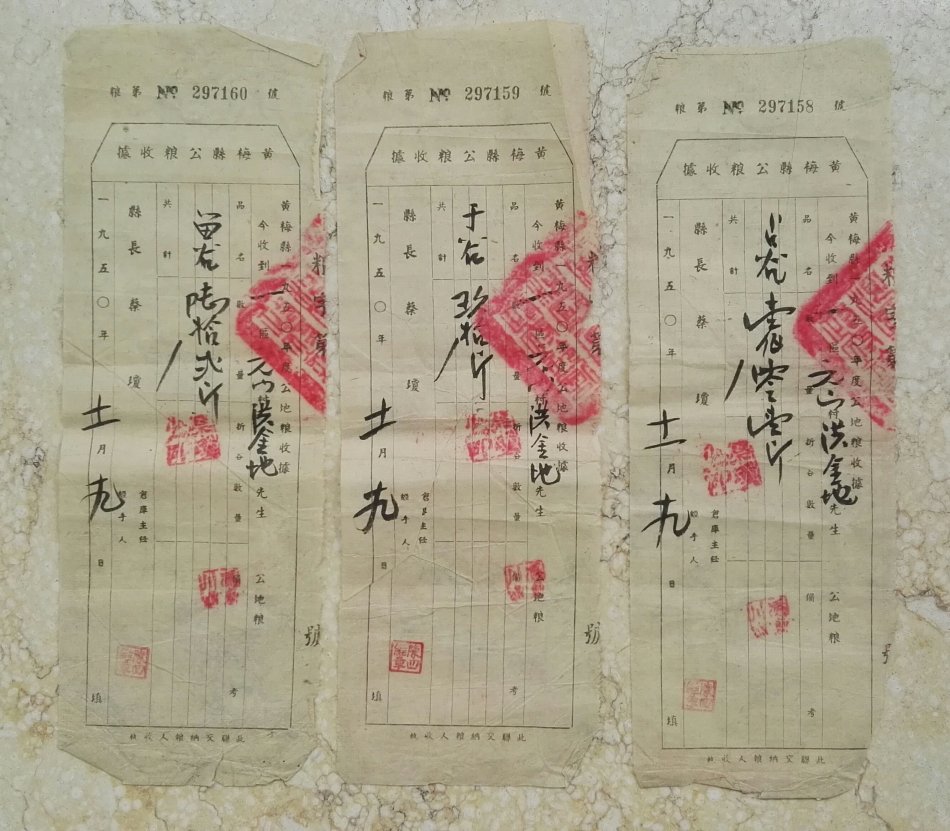 粮第 № 297160 號
黃梅縣公粮收據
黃梅縣一九五〇年度公地粮收據
今收到一區元山村洪金地先生 公地粮
品名 數量 折谷數量 備考
谷 陆拾弍斤
共計
縣長 蔡瓊
倉庫主任
經手人
一九五〇年十一月十九日填
號
此聯交納粮人收执
粮第 № 297159 號
黃梅縣公粮收據
黃梅縣一九五〇年度公地粮收據
今收到一區元山村洪金地先生 公地粮
品名 數量 折谷數量 備考
谷 玖拾斤
共計
縣長 蔡瓊
倉庫主任
經手人
一九五〇年十一月十九日填
粮字第 號
此聯交納粮人收执
粮第 № 297158 號
黃梅縣公粮收據
黃梅縣一九五〇年度公地粮收據
今收到一區元山村洪金地先生 公地粮
品名 數量 折谷數量 備考
谷 壹佰零壹斤
共計
縣長 蔡瓊
倉庫主任
經手人
一九五〇年十一月十九日填
粮字第 號
此聯交納粮人收执